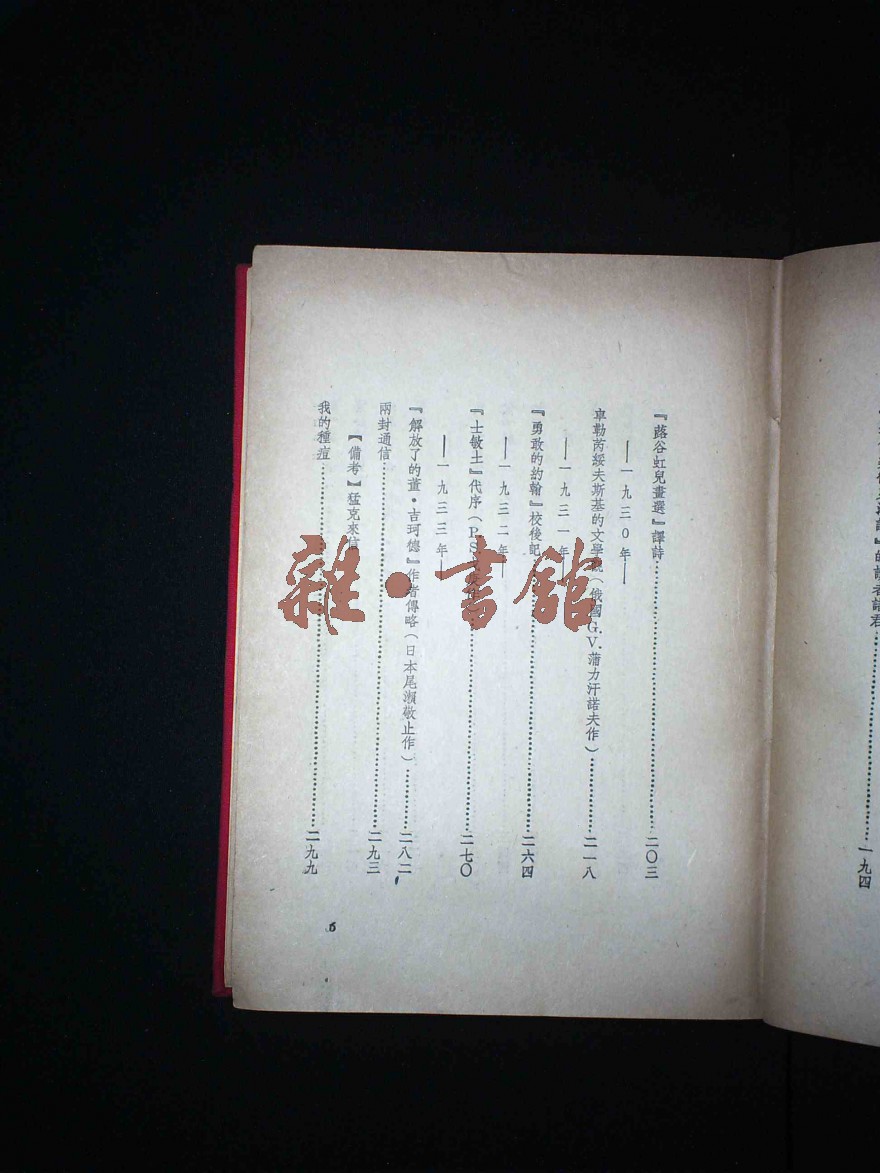 』的讀者諸君……一九四
『蕗谷虹兒畫選』譯詩……二〇三
——一九三〇年——
車勒芮綏夫斯基的文學觀(俄國G.V.蒲力汗諾夫作)……二一八
——一九三一年——
『勇敢的約翰』校後記……二六四
——一九三二年——
『士敏土』代序(P.S.……二七〇
——一九三三年——
『解放了的董·吉珂德』作者傳略(日本尾瀨敬止作)……二八二
兩封通信……二九三
【備考】猛克來信
我的種痘……二九九
6
雜·書館